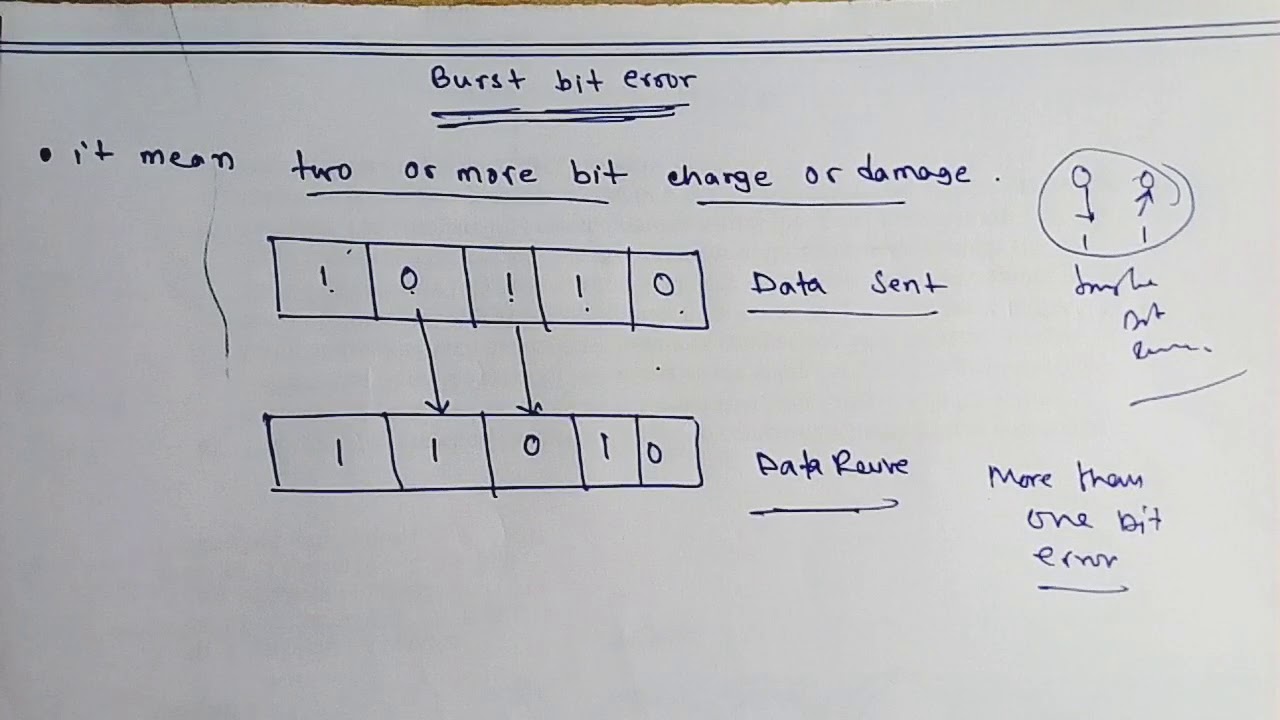 Burst bit error
• it mean two or more bit change or damage.
1 0 1 1 0
Data Sent
1 1 0 1 0
Data
More than
one bit
error
0 0
1 1
bit